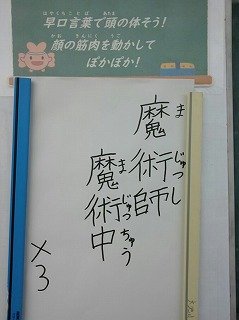 早口言葉で頭の体そう!
顔の筋肉を動かして
ぽかぽか!
魔術師
魔術中
×3